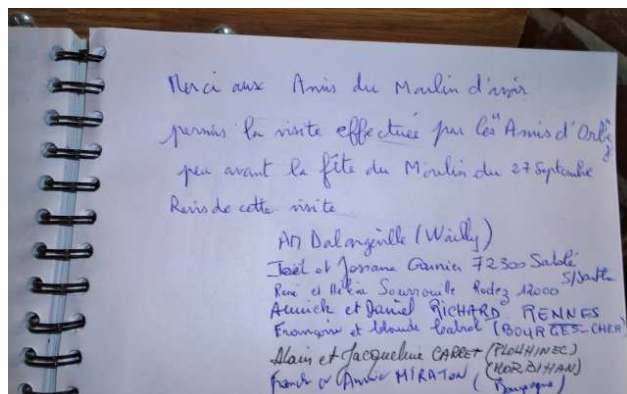 Merci aux Amis du Moulin d'avoir
permis la visite effectuée par les "Amis d'Orbi
peu avant la fête du Moulin du 27 Septembre
Ravis de cette visite
AM Dalongeville (Wailly)
Joël et Josiane Garnier 72300 Sablé
S/Sarthe
René et Hélène Rodez 12000
Annick et Daniel RICHARD RENNES
Françoise et Claude (BOURGES-CHER)
Alain et Jacqueline CARRET (PLOUHINEC)
(MORBIHAN)
Franck et Annie MIRATON (Bourgogne)